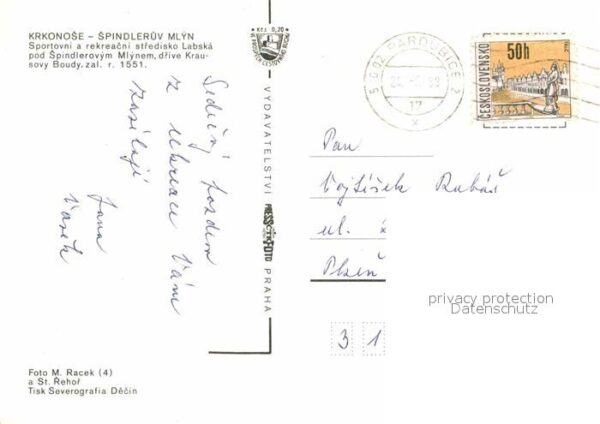 KRKONOŠE – ŠPINDLERŮV MLÝN
Sportovní a rekreační středisko Labská
pod Špindlerovým Mlýnem, dříve Krau-
sovy Boudy, zal. r. 1551.
Kčs 0,20
VYDAVATELSTVÍ PRESSFOTO PRAHA
PARDUBICE 2
17
x
50h
ČESKOSLOVENSKO
Srdečný pozdrav
z rekreace Vám
zasílají
Jana
Vašek
Pan
Vojtíšek
ul.
Plzeň
3 1
privacy protection
Datenschutz
Foto M. Racek (4)
a St. Řehoř
Tisk Severografia Děčín